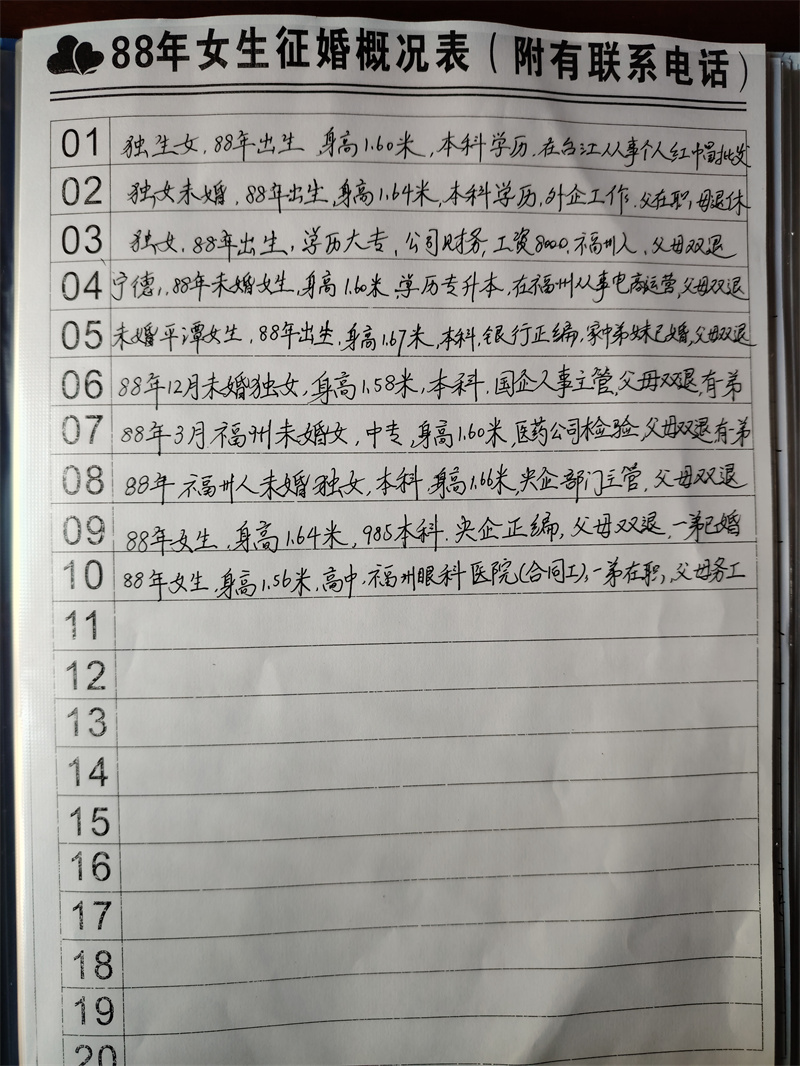 88年女生征婚概况表(附有联系电话)
01 独生女,88年出生,身高1.60米,本科学历.在台江从事个人红中国批发
02 独女未婚,88年出生,身高1.64米,本科学历,外企工作.父在职,母退休
03 独女,88年出生,学历大专,公司财务,工资8000,福州人,父母双退
04 宁德,88年未婚女生,身高1.60米,学历专升本,在福州从事电商运营,父母双退
05 未婚平潭女生,88年出生,身高1.67米,本科,银行正编,家中弟妹已婚,父母双退
06 88年12月未婚独女,身高1.58米,本科.国企人事主管,父母双退,有一弟
07 88年3月福州未婚女,中专,身高1.60米,医药公司检验,父母双退有一弟
08 88年福州人未婚独女,本科,身高1.66米,央企部门主管,父母双退
09 88年女生,身高1.64米,985本科.央企正编,父母双退,一弟已婚
10 88年女生,身高1.56米,高中,福州眼科医院(合同工),一弟在职,父母务工
11
12
13
14
15
16
17
18
19
20